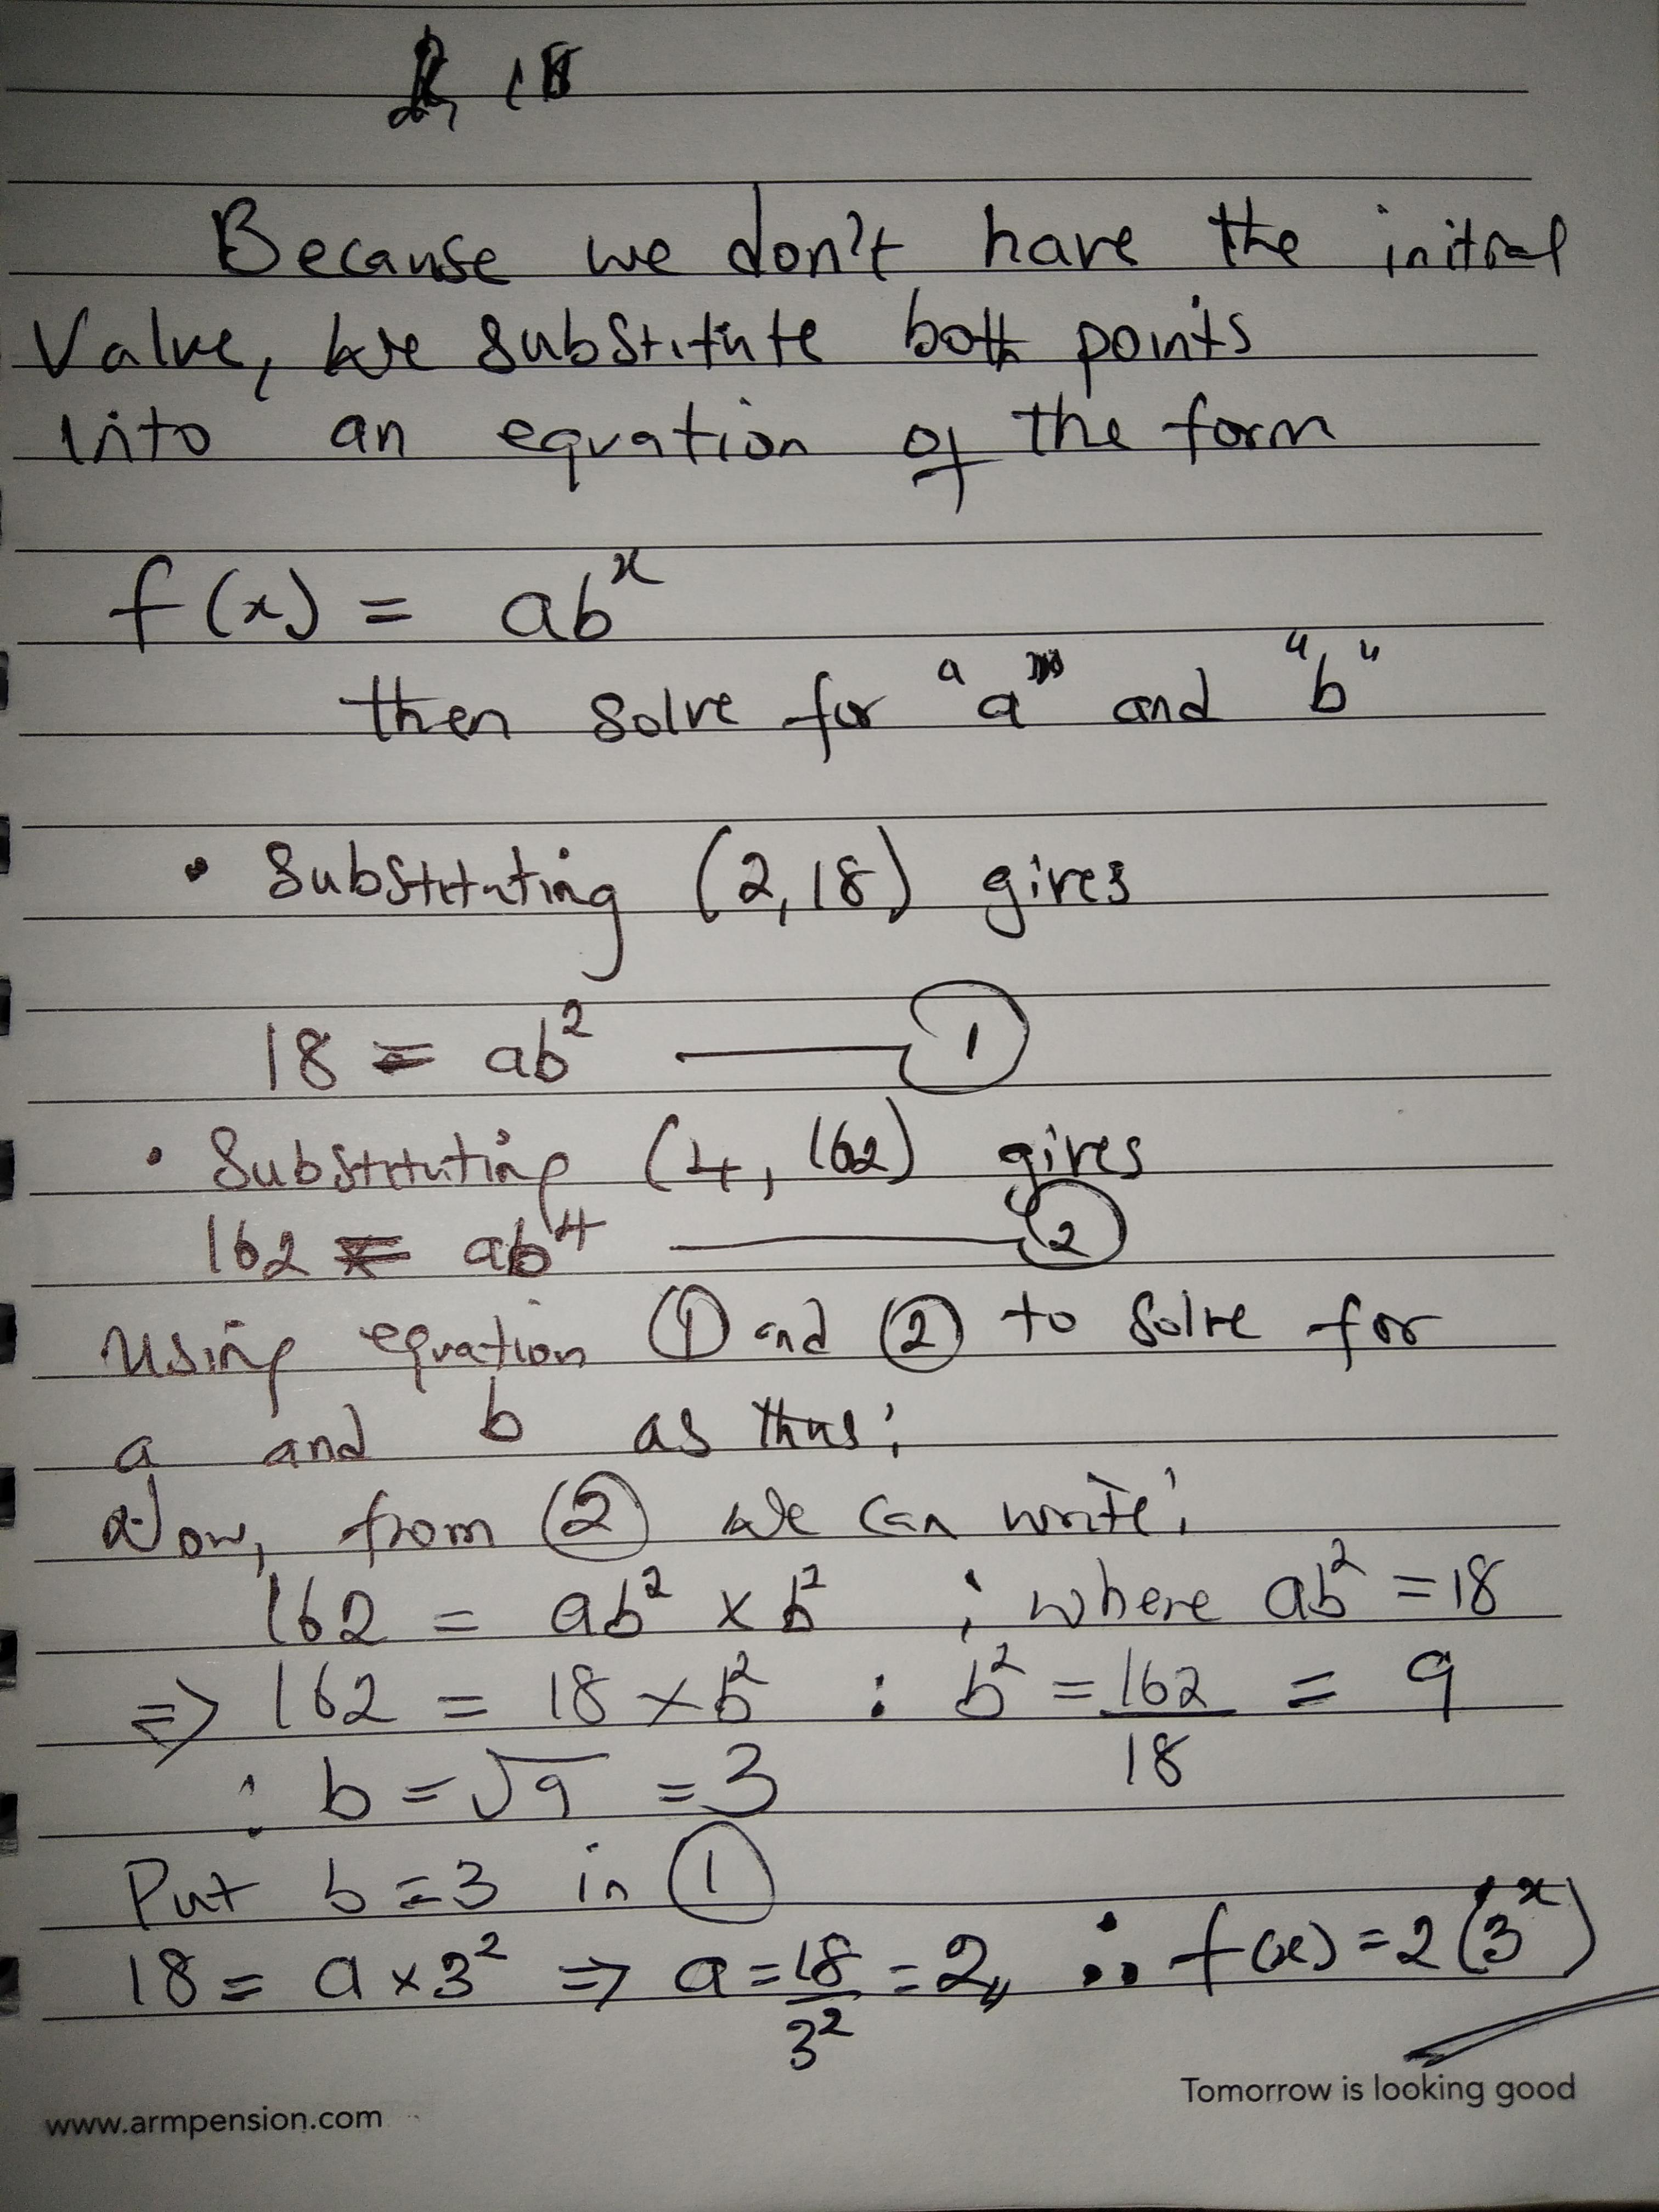 18
Because we don't have the initial
Value, we substitute both points
into an equation of the form
f(x) = abˣ
then solve for "a" and "b"
• Substituting (2,18) gives
18 = ab² —— ①
• Substituting (4, 162) gives
162 = ab⁴ —— ②
Using equation ① and ② to solve for
a and b as thus;
Now, from ② we can write;
162 = ab² × b² ; where ab² = 18
⇒ 162 = 18 × b² : b² = 162/18 = 9
: b = √9 = 3
Put b = 3 in ①
18 = a × 3² ⇒ a = 18/3² = 2,, ∴ f(x) = 2(3ˣ)
Tomorrow is looking good
www.armpension.com